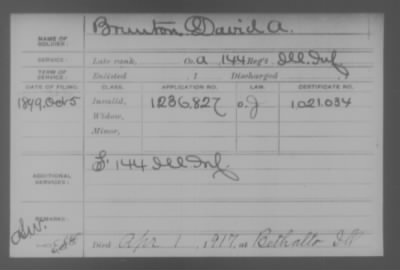 NAME OF SOLDIER: Brunton, David A.
SERVICE: Late rank, Co. A, 144 Reg't Ill. Inf.
TERM OF SERVICE: Enlisted , 1 Discharged , 1
DATE OF FILING. CLASS. APPLICATION NO. LAW. CERTIFICATE NO.
1899. Oct 5 Invalid, 1236,827 1.021.034
Widow,
Minor,
ADDITIONAL SERVICES: F. 144 Ill. Inf.
REMARKS:
Died Apr 1, 1917, at Bethalto Ill